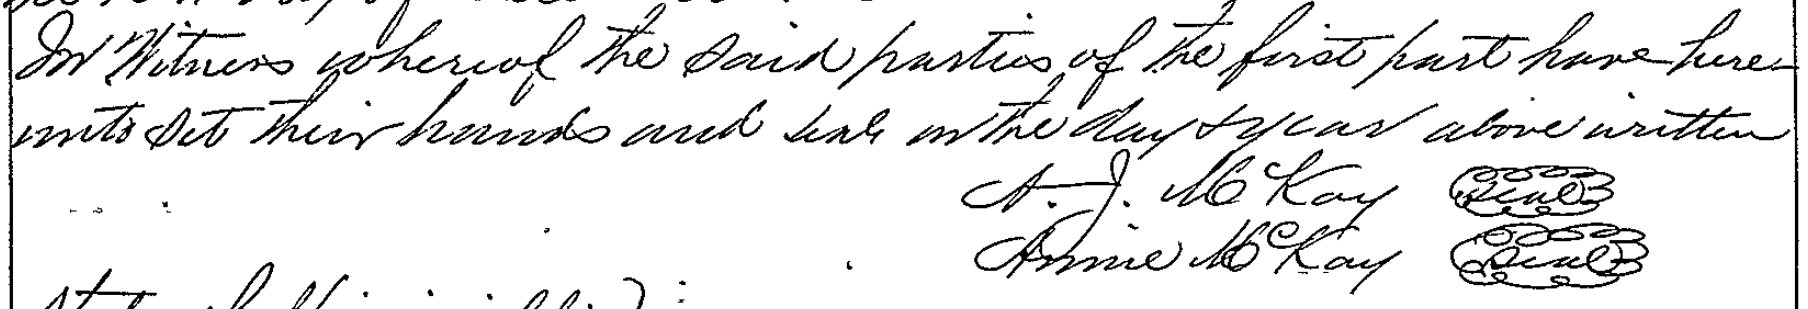 In Witness whereof the said parties of the first part have here-
unto set their hands and seals on the day & year above written
A. J. McKay Seal
Annie McKay Seal
State of Mississippi